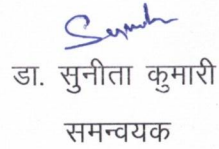 डा. सुनीता कुमारी
समन्वयक